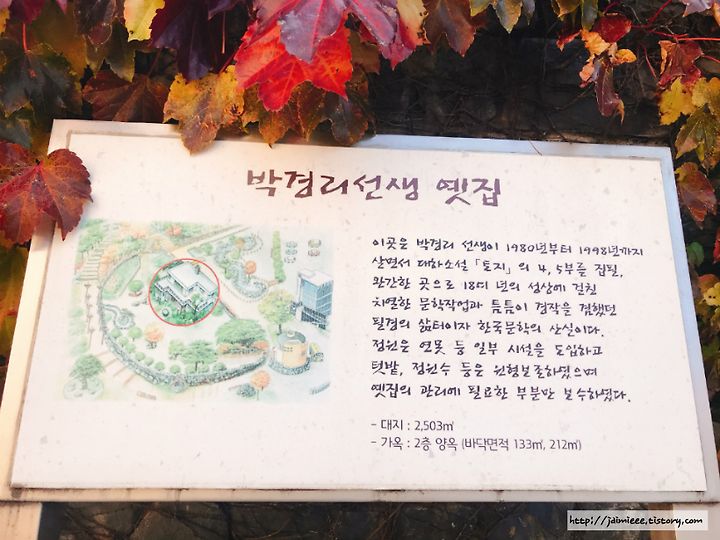 박경리선생 옛집
이곳은 박경리 선생이 1980년부터 1998년까지
살면서 대하소설 「토지」의 4, 5부를 집필,
완간한 곳으로 18여 년의 성상에 걸친
치열한 문학작업과 틈틈이 경작을 겸했던
필경의 삶터이자 한국문학의 산실이다.
정원은 연못 등 일부 시설을 도입하고
텃밭, 정원수 등은 원형보존하였으며
옛집의 관리에 필요한 부분만 보수하였다.
- 대지 : 2,503㎡
- 가옥 : 2층 양옥 (바닥면적 133㎡, 212㎡)
http://jaimieee.tistory.com